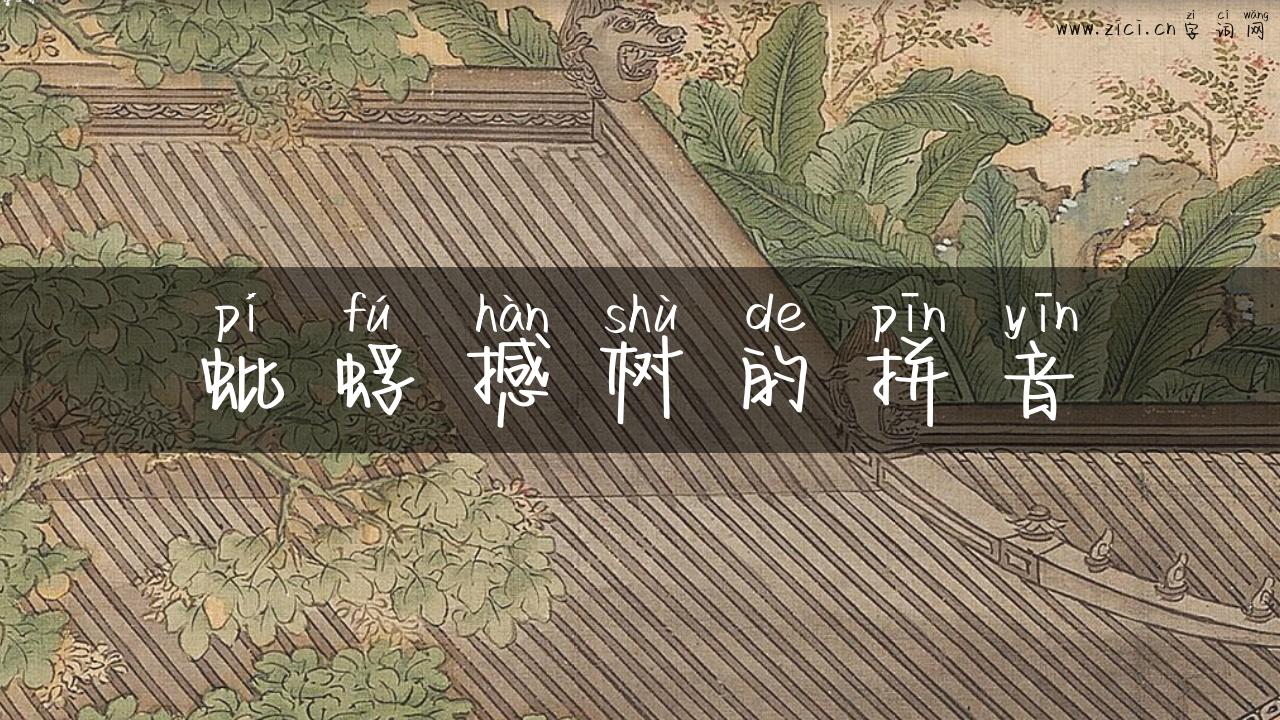 zì cí wǎng
www.zici.cn 字 词 网
pí fú hàn shù de pīn yīn
蚍 蜉 撼 树 的 拼 音